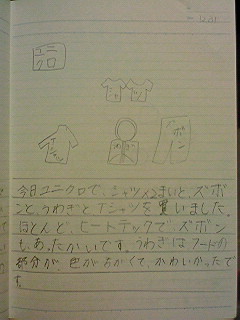 ユニ
クロ
Tシャツ
ズボン
今日ユニクロで、シャツ2まいと、ズボ
ンと、うわぎとTシャツを買いました。
ほとんど、ヒートテックで、ズボン
も、あったかいです。うわぎはフードの
部分が、色がちがくて、かわいかったで
す。